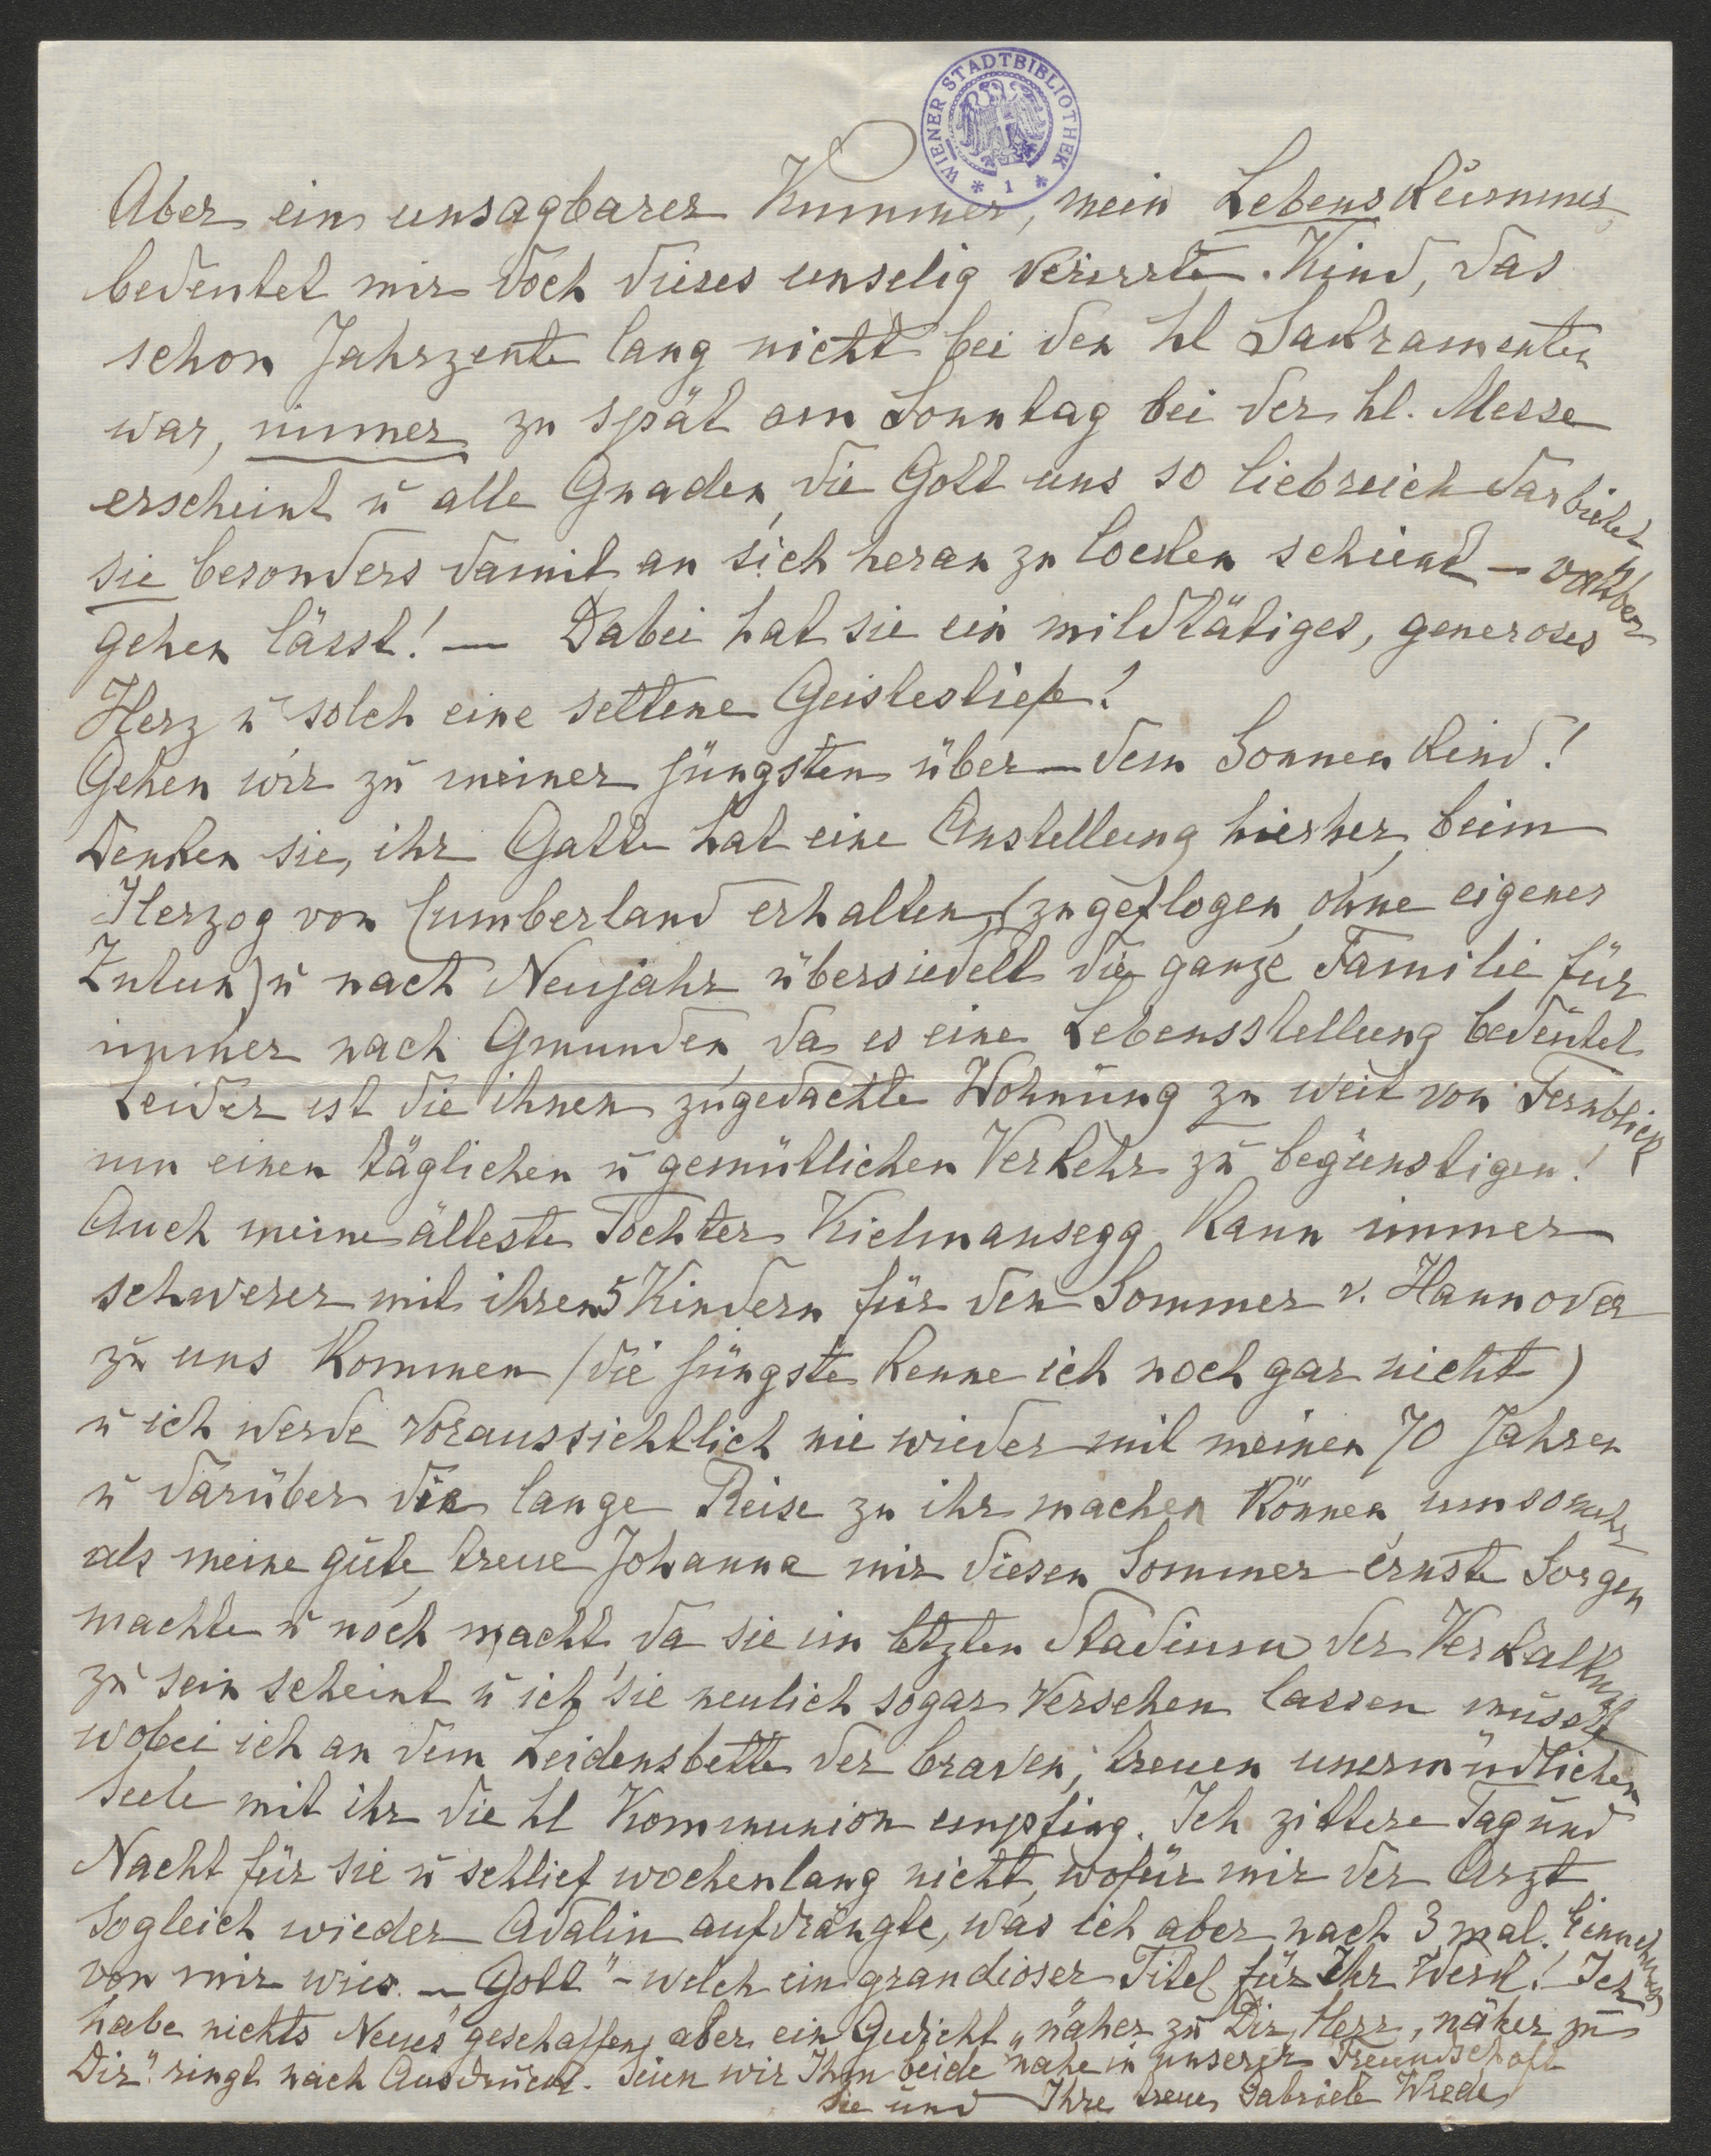 WIENER STADTBIBLIOTHEK
* 1 *
Aber ein unsagbarer Kummer, mein Lebenskummer,
bedeutet mir doch dieses unselig verirrte Kind, das
schon Jahrzente lang nicht bei den hl Sakramenten
war, immer zu spät am Sonntag bei der hl. Messe
erscheint u alle Gnaden, die Gott uns so liebreich darbietet
sie besonders damit an sich heran zu locken scheint – vorüber
gehen lässt! — Dabei hat sie ein mildtätiges, generoses
Herz u solch eine seltene Geistestiefe!
Gehen wir zu meiner Jüngsten über – dem Sonnenkind!
Denken sie, ihr Gatte hat eine Anstellung hierher, beim
Herzog von Cumberland erhalten, (zugeflogen, ohne eigenes
Zutun) u nach Neujahr übersiedelt die ganze Familie für
immer nach Gmunden, da es eine Lebensstellung bedeutet
Leider ist die ihnen zugedachte Wohnung zu weit von Fernblick
um einen täglichen u gemütlichen Verkehr zu begünstigen!
Auch meine älteste Tochter Kielmansegg kann immer
schwerer mit ihren 5 Kindern für den Sommer v. Hannover
zu uns kommen (die Jüngste kenne ich noch gar nicht)
u ich werde voraussichtlich nie wieder mit meinen 70 Jahren
u darüber die lange Reise zu ihr machen können, umsomehr
als meine gute, treue Johanna mir diesen Sommer ernste Sorgen
machte u noch macht, da sie im letzten Stadium der Verkalkung
zu sein scheint u ich sie neulich sogar Versehen lassen musste
wobei ich an dem Leidensbette der braven, treuen unermüdlichen
Seele mit ihr die hl Kommunion empfing. Ich zittere Tag und
Nacht für sie u schlief wochenlang nicht, wofür mir der Arzt
sogleich wieder Adalin aufdrängte, was ich aber nach 3 mal. Einnehmen
von mir wies. – Gott" – welch ein grandioser Titel für Ihr Werk! Ich
habe nichts Neues geschaffen, aber ein Gedicht „näher zu Dir, Herr, näher zu
Dir" ringt nach Ausdruck. Seien wir Ihm beide nahe in unserer Freundschaft
Sie und Ihre treue Gabriele Wrede